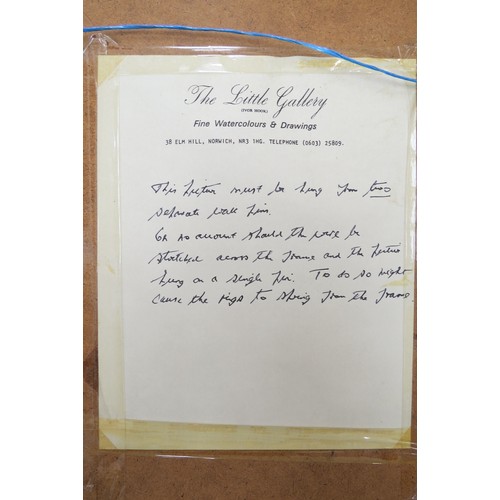 The Little Gallery
Fine Watercolours & Drawings
38 ELM HILL, NORWICH, NR3 1HG. TELEPHONE (0603) 25809.
This picture must be hung from two
separate wall pins.
On no account should the wire be
stretched across the frame and the picture
hung on a single pin. To do so might
cause the rings to spring from the frame